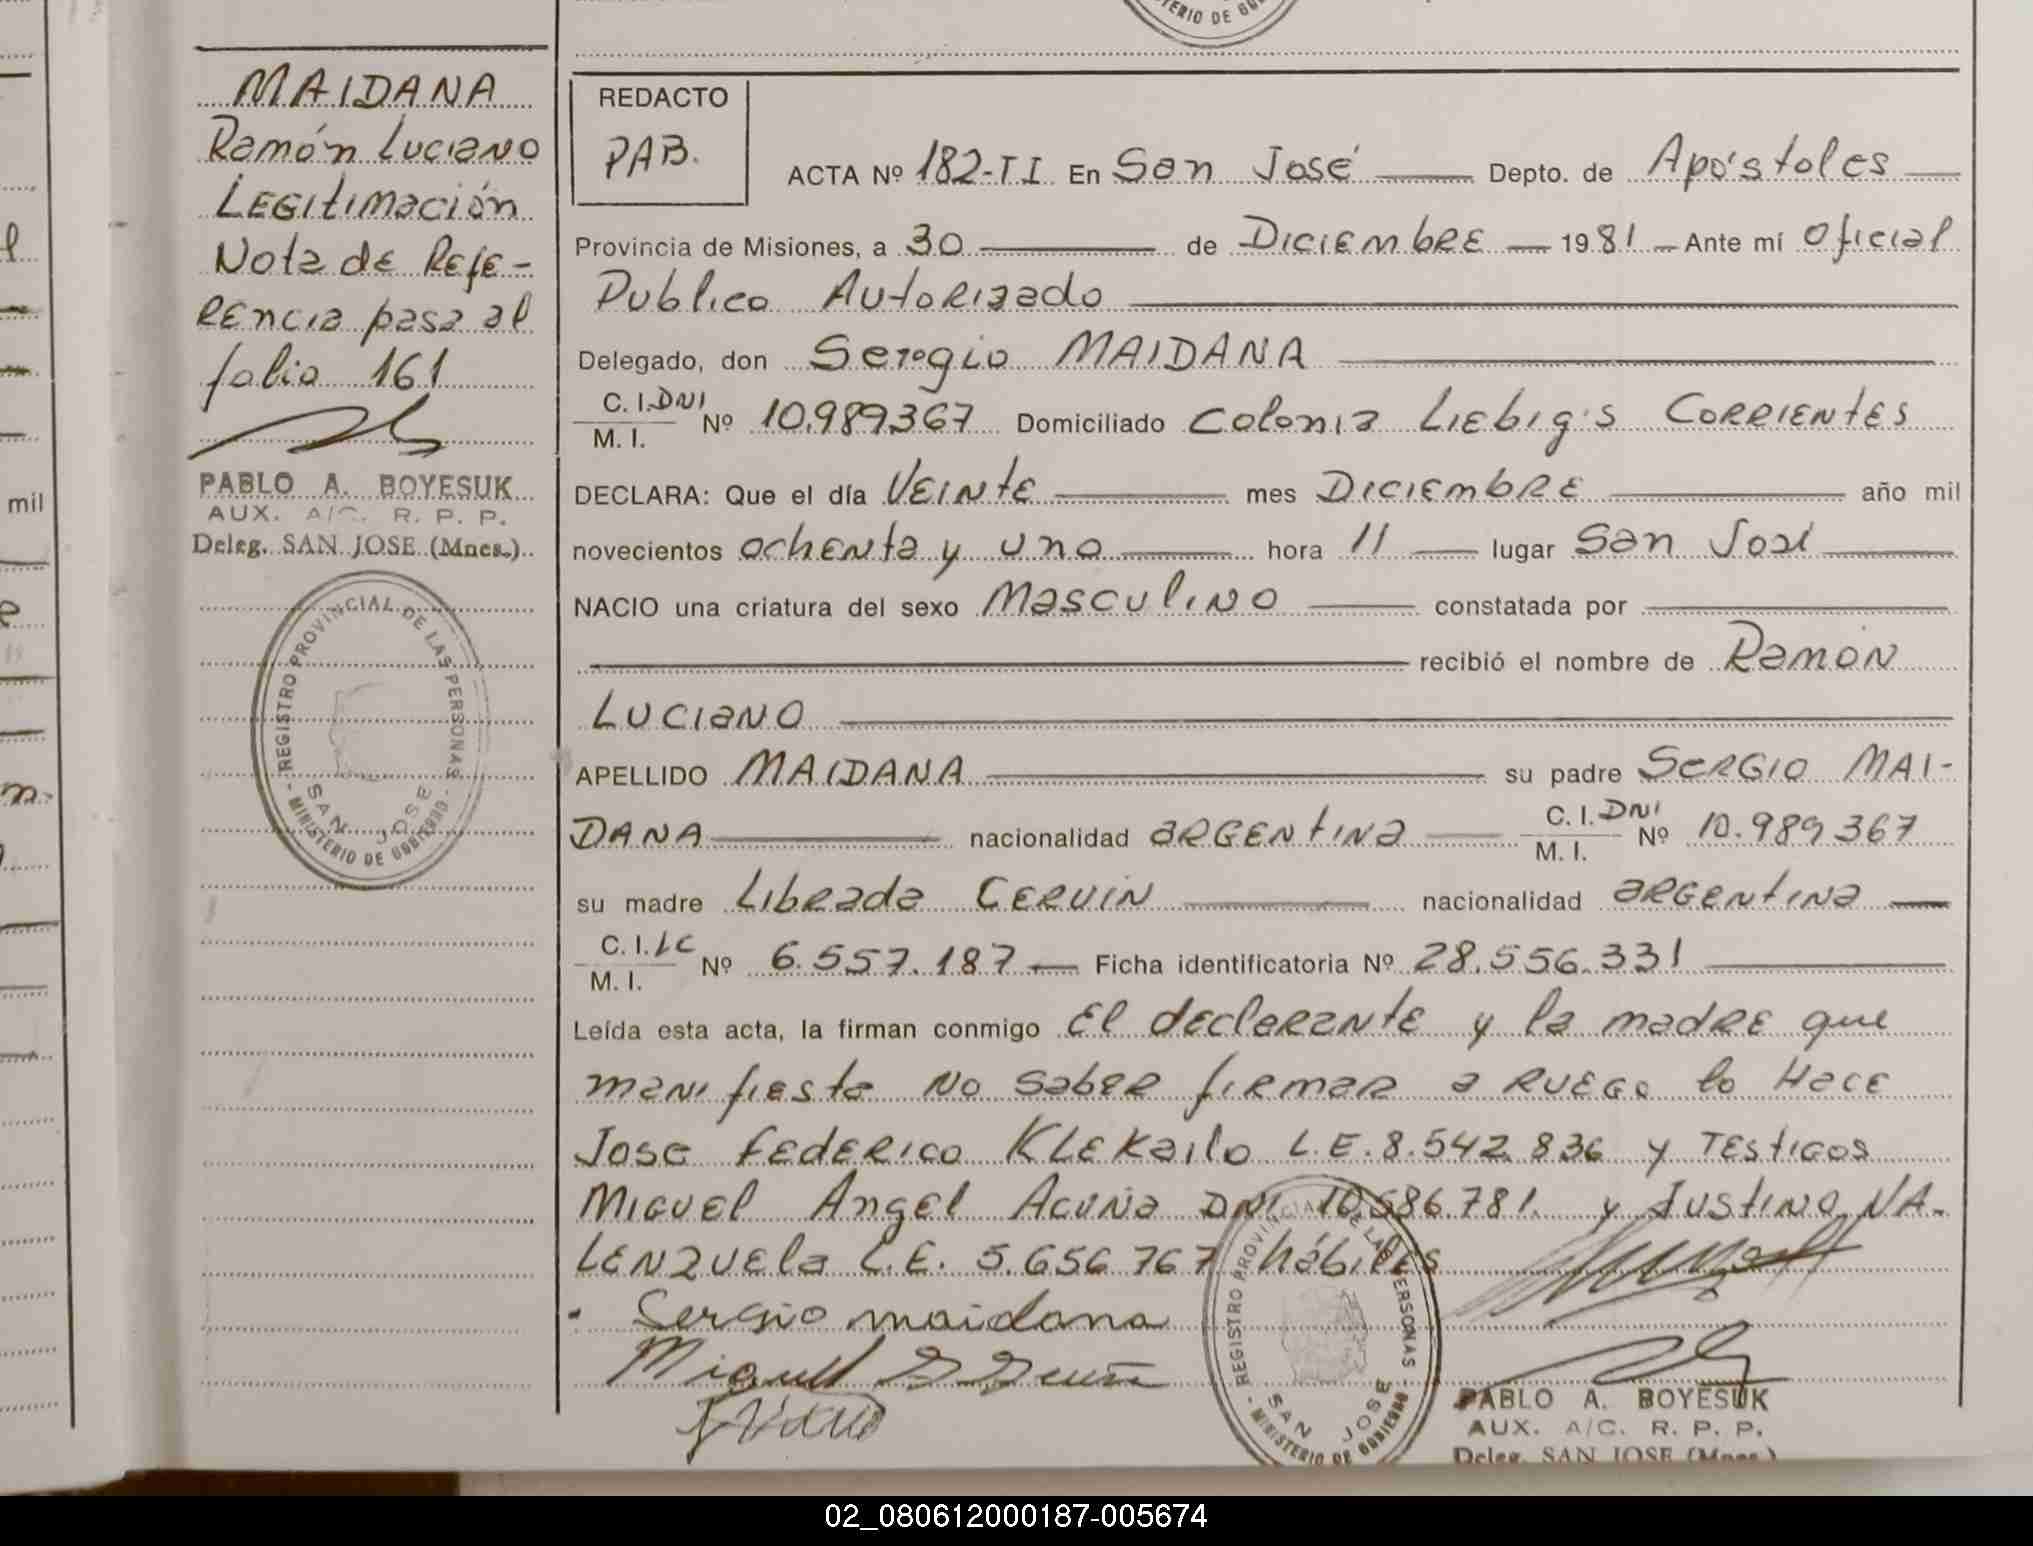 MINISTERIO DE GOB
MAIDANA
Ramón Luciano
LEGitimación
Nota de Refe-
rencia pasa al
folio 161
PABLO A. BOYESUK
AUX. A/C. R. P. P.
Deleg. SAN JOSE (Mnes.)
REGISTRO PROVINCIAL DE LAS PERSONAS
SAN JOSE
MINISTERIO DE GOBIERNO
REDACTO
PAB.
ACTA Nº 182-TI En San José Depto. de Apóstoles
Provincia de Misiones, a 30 de Diciembre 1981 Ante mí Oficial
Publico Autorizado
Delegado, don Sergio MAIDANA
C. I. DNI
M. I. Nº 10.989.367 Domiciliado Colonia Liebig's Corrientes
DECLARA: Que el día Veinte mes Diciembre año mil
novecientos ochenta y uno hora 11 lugar San José
NACIO una criatura del sexo Masculino constatada por
recibió el nombre de Ramón
Luciano
APELLIDO MAIDANA su padre Sergio MAI-
DANA nacionalidad argentina C. I. DNI
M. I. Nº 10.989 367
su madre Librada CERVIN nacionalidad argentina
C. I. LC
M. I. Nº 6.557.187 Ficha identificatoria Nº 28.556.331
Leída esta acta, la firman conmigo El declarante y la madre que
manifiesta no saber firmar a ruego lo hace
Jose Federico Klekailo L.E. 8.542.836 y Testigos
Miguel Angel Acuña DNI 10.686.781. y Justino VA-
lenzuela L.E. 5.656 767 hábiles
Sergio maidana
REGISTRO PROVINCIAL DE LAS PERSONAS
SAN JOSE
MINISTERIO DE GOBIERNO
PABLO A. BOYESUK
AUX. A/C. R. P. P.
Deleg. SAN JOSE (Mnes.)
mil
02_080612000187-005674